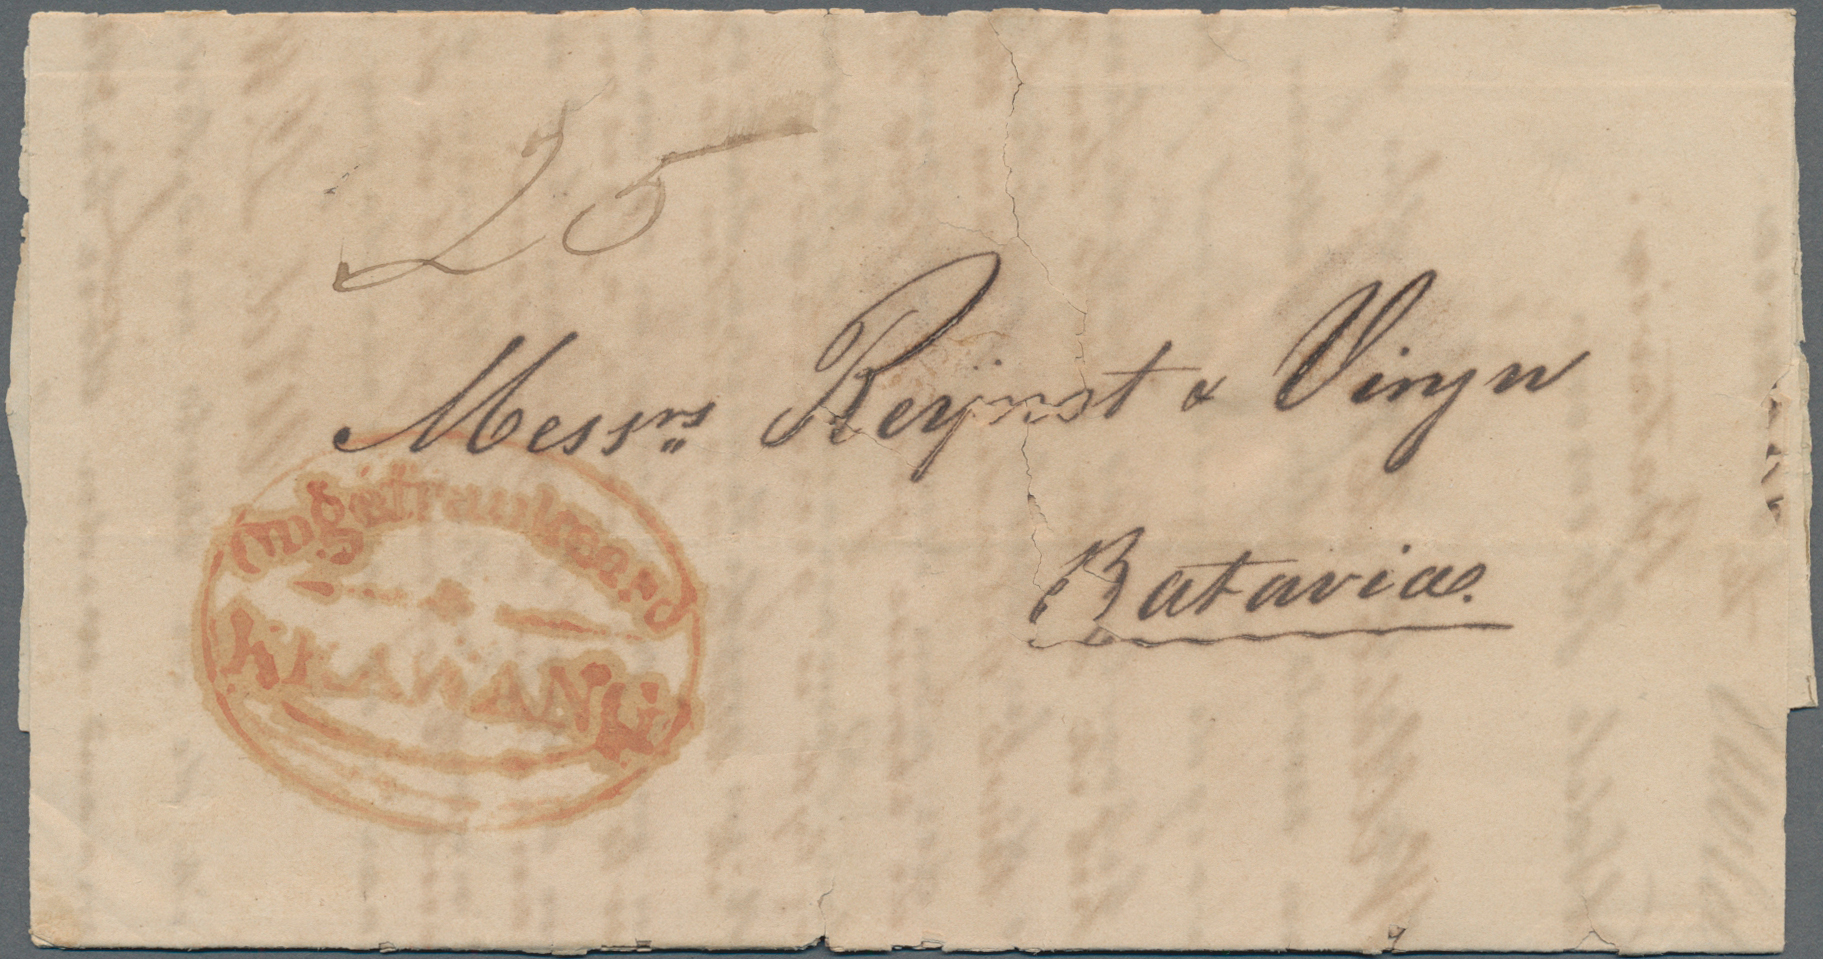 25
Messrs Reijnst & Vinju
Batavia.
Ongefrankeerd
KRAWANG